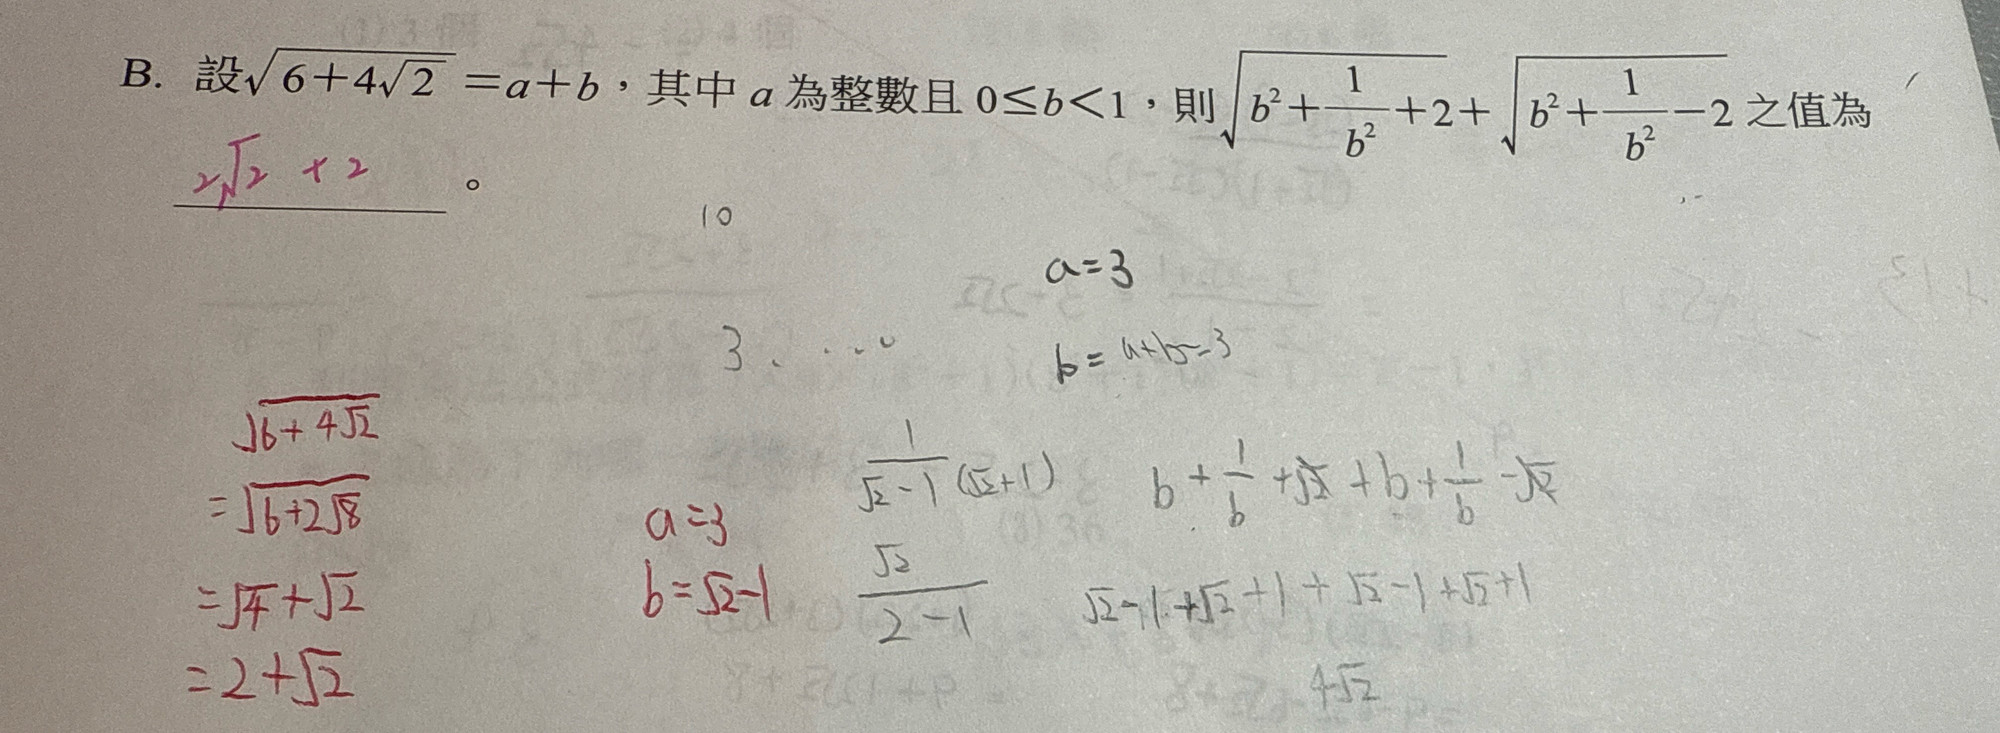 B. 設√(6+4√2) =a+b,其中 a 為整數且 0≤b<1,則√(b²+1/b²+2)+√(b²+1/b²−2) 之值為
2√2 + 2 。
10
a=3
3. ...
b= a+b-3
√(6+4√2)
=√(6+2√8)
=√4+√2
=2+√2
a=3
b=√2-1
1/(√2-1) (√2+1)
√2/(2-1)
b+1/b+√2+b+1/b-√2
√2-1+√2+1+√2-1+√2+1
4√2